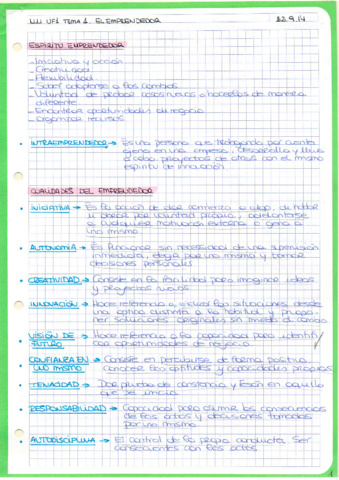 UF1 TEMA 1. EL EMPRENDEDOR 22.9.14
ESPIRITU EMPRENDEDOR
- Iniciativa y acción
- Creatividad
- Flexibilidad
- Saber adaptarse a los cambios
- Voluntad de probar cosas nuevas o hacerlas de manera
diferente
- Encontrar oportunidades de negocio
- Organizar recursos
• INTRAEMPRENDEDOR → Es una persona que trabajando por cuenta
ajena en una empresa, desarrolla y lleva
a cabo proyectos de otros con el mismo
espíritu de innovación
CUALIDADES DEL EMPRENDEDOR
• INICIATIVA → Es la acción de dar comienzo a algo, de hablar
u obrar por voluntad propia, adelantarse
a cualquier motivación externa o ajena a
uno mismo
• AUTONOMIA → Es funcionar sin necesidad de una supervisión
inmediata, elegir por uno mismo y tomar
decisiones personales
• CREATIVIDAD → Consiste en la facilidad para imaginar ideas
y proyectos nuevos
• INNOVACIÓN → Hace referencia a evaluar las situaciones desde
una óptica distinta a la habitual y propo-
ner soluciones originales sin miedo al cambio
• VISIÓN DE → Hace referencia a la capacidad para identifi-
FUTURO car oportunidades de negocio
• CONFIANZA EN → Consiste en percibirse de forma positiva,
UNO MISMO conocer las aptitudes y capacidades propias
• TENACIDAD → Dar prueba de constancia y tesón en aquello
que se inicia
• RESPONSABILIDAD → Capacidad para asumir las consecuencias
de los actos y decisiones tomadas
por uno mismo
• AUTODISCIPLINA → El control de la propia conducta. Ser
consecuentes con los actos